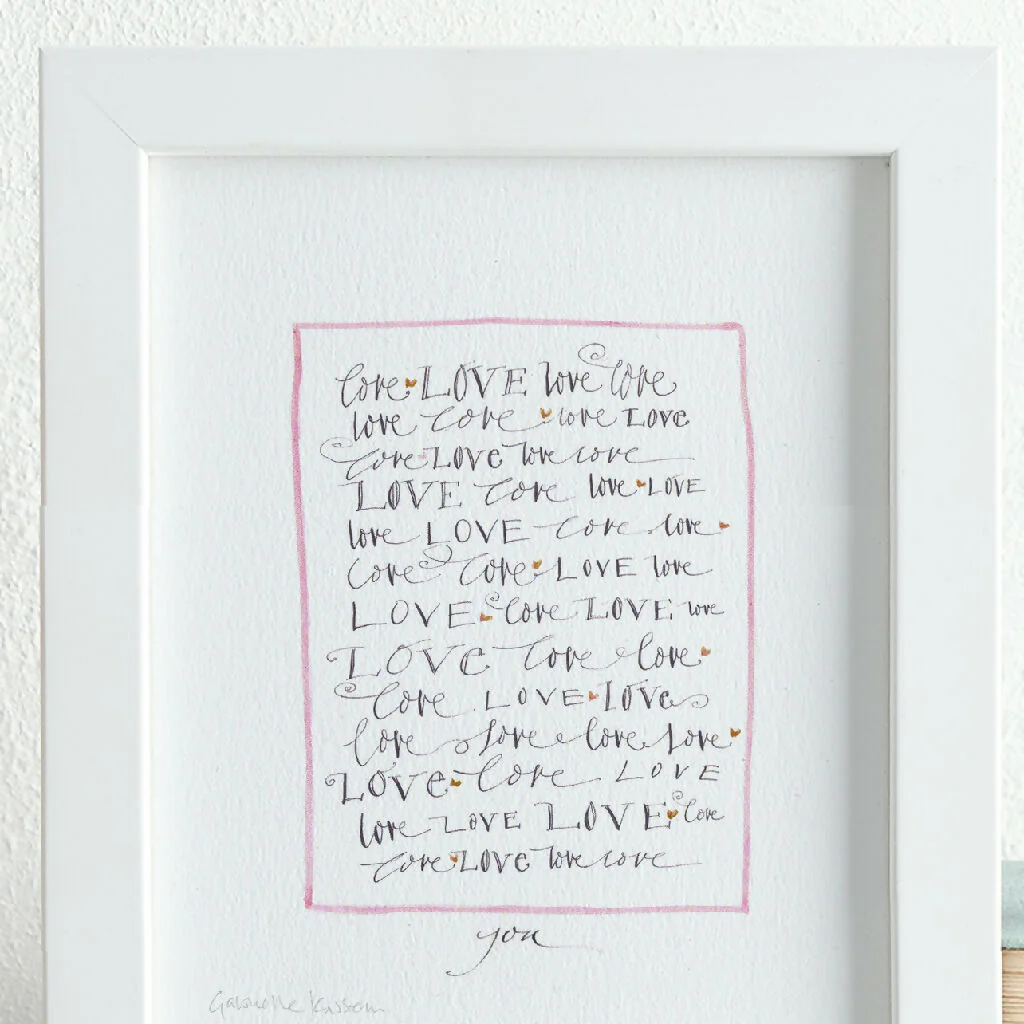 love LOVE love love
love love love LOVE
love LOVE love love
LOVE love love LOVE
love LOVE love love
love love LOVE love
LOVE love LOVE love
LOVE love love
love LOVE LOVE
love love love love
LOVE love LOVE
love LOVE LOVE love
love LOVE love love
you